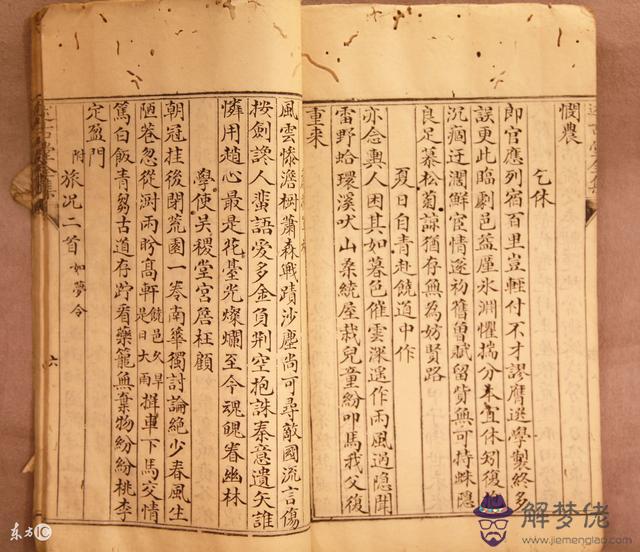 憫農
乞休
郎官應列宿百里豈輕付不才謬膺選學製終多
誤更此臨劇邑益厪氷淵懼揣分本宜休矧復抱
沉痼迂濶鮮宦情遂初舊曾賦留貲無可持蛛隱
良足慕松菊諒猶存無為妨賢路
夏日自青赴饒道中作
亦念輿人困其如暮色催雲深遙作雨風過隱聞
雷野蛤環溪吠山桑統屋栽兒童紛叩馬我父復
重來
風雲慘澹樹蕭森戰蹟沙塵尚可尋敵國流言傷
按劍讒人蜚語愛多金負荆空抱誅秦意遺矢誰
憐用趙心最是花臺光燦爛至今魂魄眷幽林
學使吴稷堂宮詹枉顧
朝冠挂後閉荒園一卷南華獨討論絕少春風生
陋巷忽從澍雨盼高軒饒邑久旱是日大雨車下馬交情
篤白飯青芻古道存竚看藥籠無棄物紛紛桃李
定盈門
附旅况二首如夢令
六
东方IC
解梦佬
www.jiemenglao.com